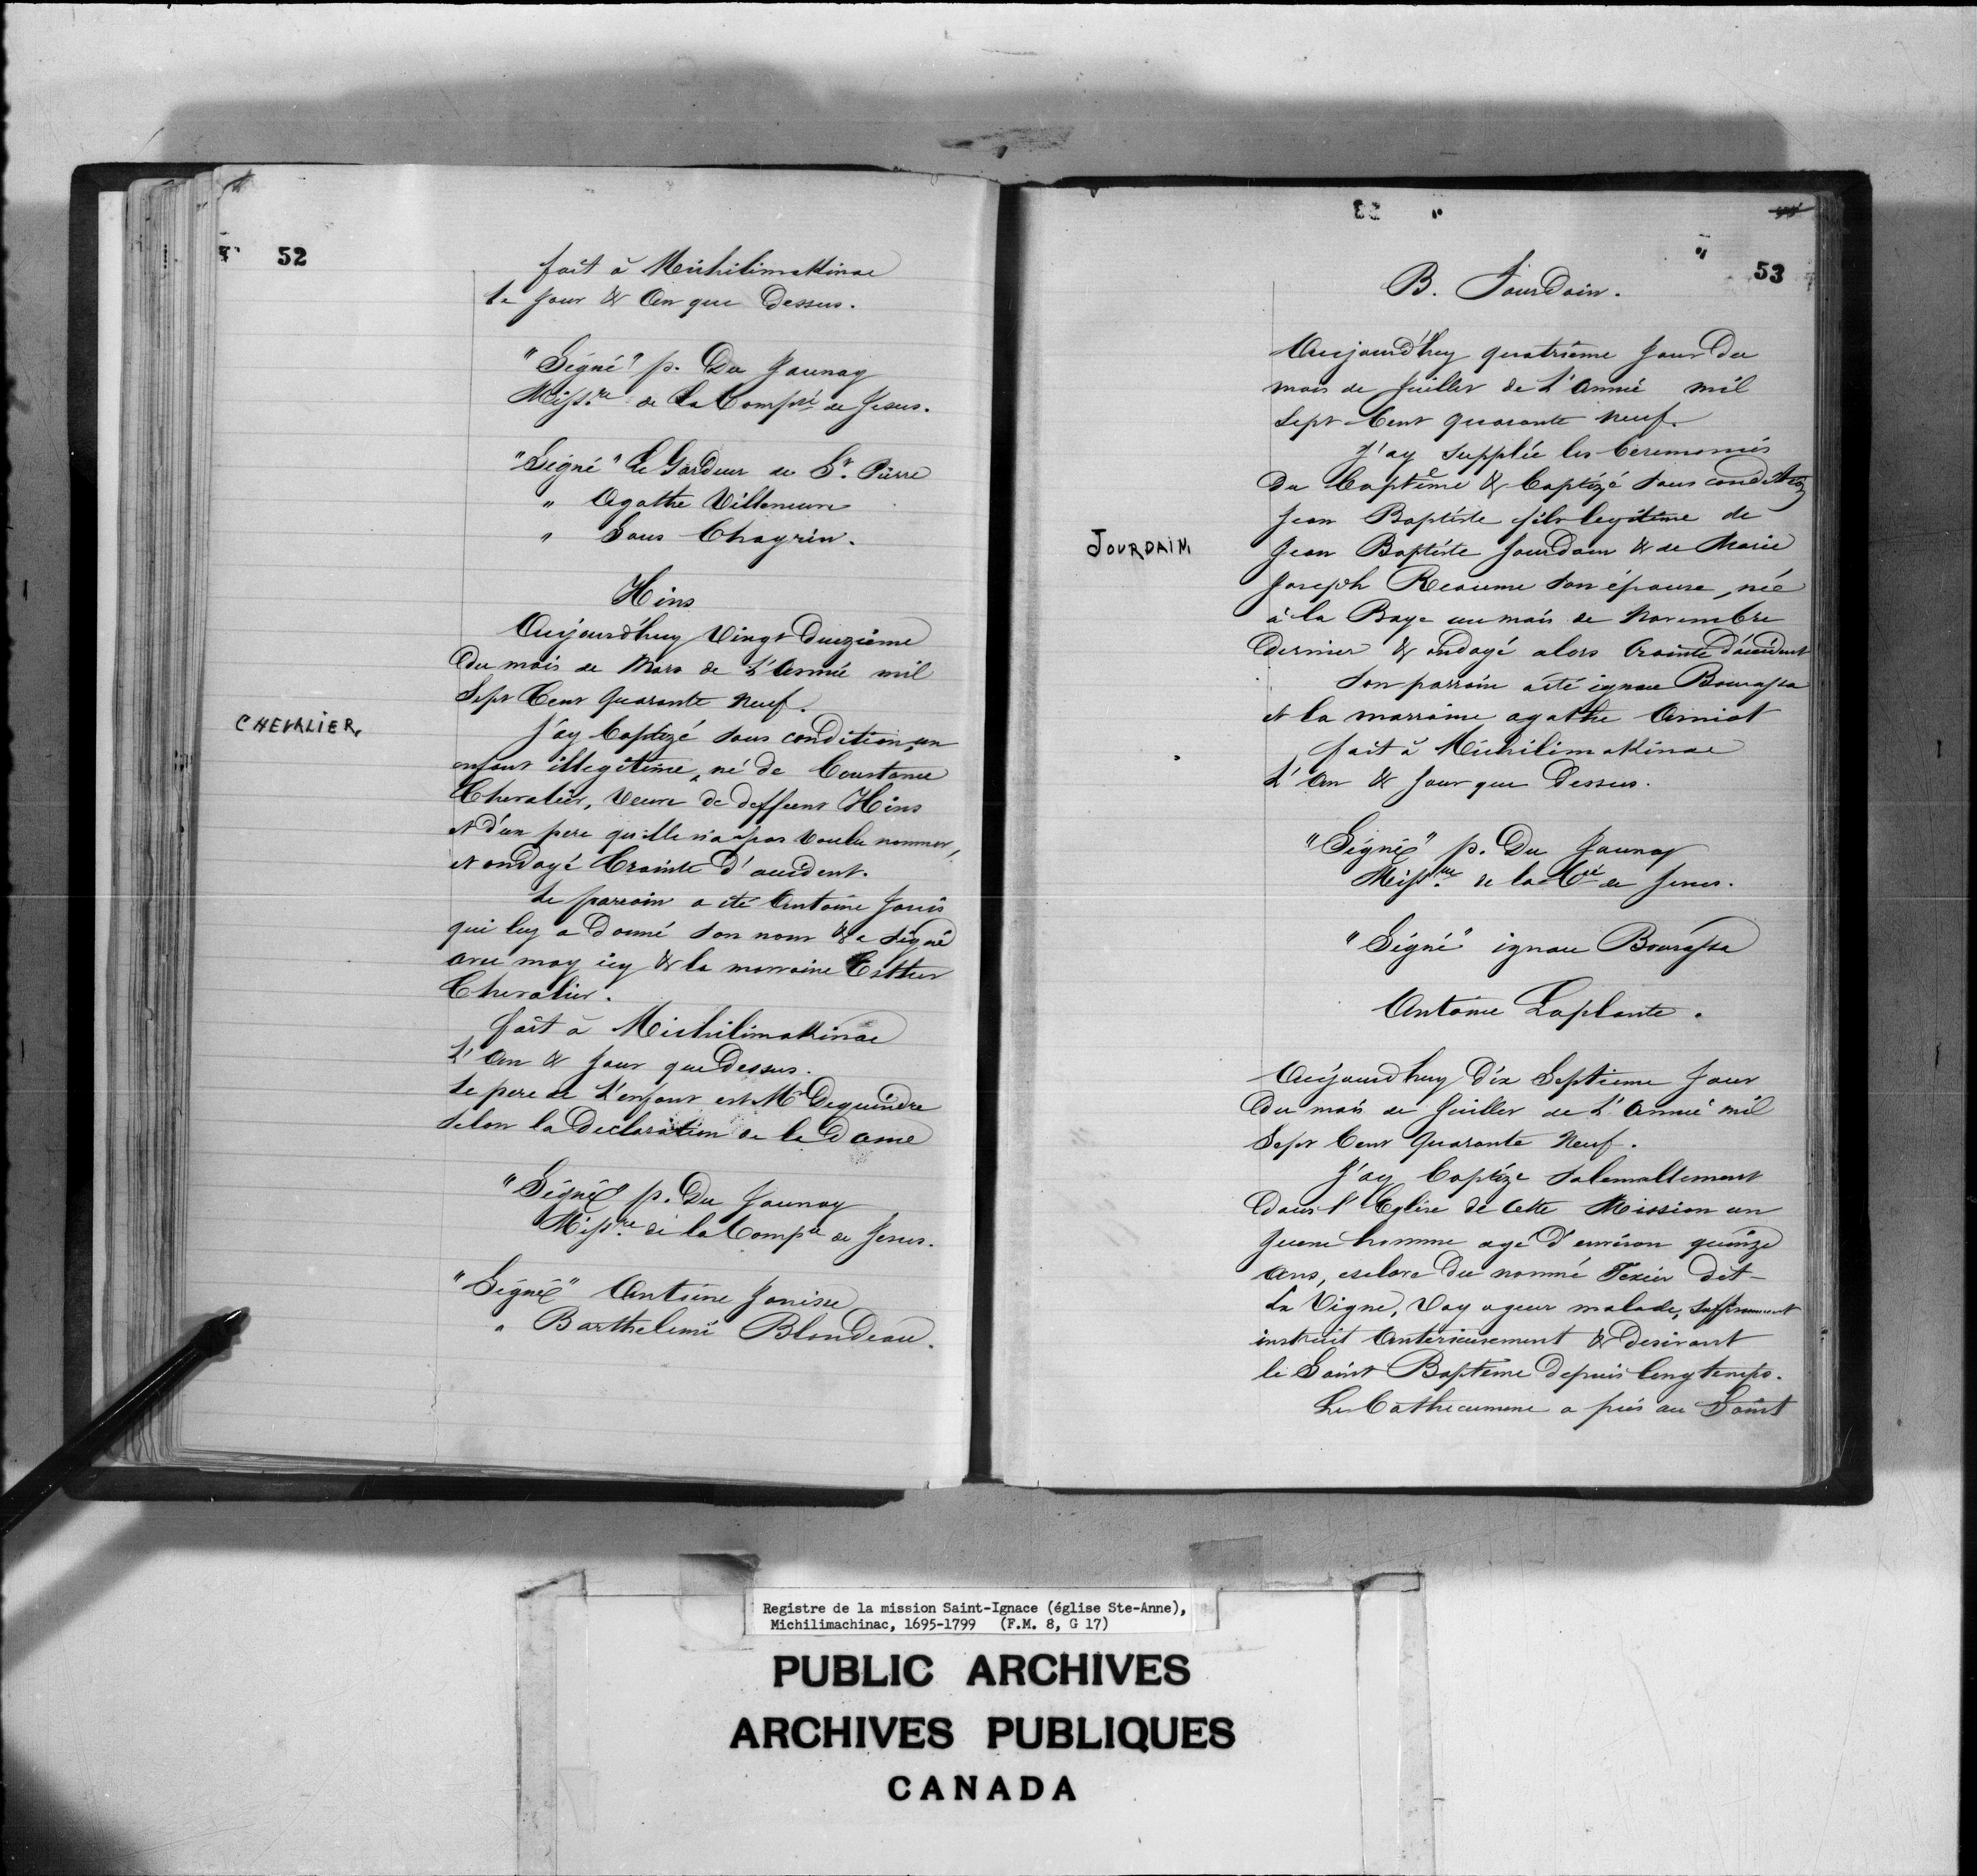 52
fait à Michilimakinac
le jour & An que Dessus.
"Signé" p. Du Jaunay
Miss.re de la Comp.ié de Jesus.
"Signé" Le Gardeur de St. Pierre
" Agathe Villeneuve
" Sans Chagrin.
Hins
Aujourd'huy Vingt Deuzième
du mois de Mars de L'Année mil
Sept Cent quarante neuf.
CHEVALIER,
J'ay baptizé sous condition, un
enfant illegitime, né de Constance
Chevalier, Veuve de deffunt Hins
et d'un pere qu'elle n'a pas voulu nommer,
et ondoyé Crainte d'accident.
le parrain a été Antoine Janis
qui luy a donné son nom & a signé
avec moy icy & la marraine Esther
Chevalier.
fait à Michilimakinac
L'An & Jour que Dessus.
le pere de L'enfant est Mr Dequindre
selon la Declaration de la Dame
"Signé" p. Du Jaunay
Miss.re de la Comp.ie de Jesus.
"Signé" Antoine Janisse
" Barthelemi Blondeau.
53
B. Jourdain.
Aujourd'huy quatrième Jour Du
mois de Juillet de L'Année mil
Sept Cent quarante neuf.
J'ay supplée les Ceremonies
du baptême & baptizé sous condition
Jean Baptiste fils legitime de
JOURDAIN
Jean Baptiste Jourdain & de Marie
Joseph Reaume son épouse, née
à la Baye au mois de Novembre
dernier & ondoyé alors Crainte d'accident
son parrain a été ignace Bourassa
et la marraine agathe Amiot
fait à Michilimakinac
L'An & Jour que Dessus.
"Signé" p. Du Jaunay
Miss.re de la Cié de Jesus.
"Signé" ignace Bourassa
Antoine Laplante.
Aujourd'huy Dix Septieme Jour
Du mois de Juillet de L'Année mil
Sept Cent Quarante Neuf.
J'ay baptizé Solemnellement
dans l'Eglise de cette Mission un
Jeune homme agé d'environ quinze
Ans, esclave du nommé Texier dit-
La Vigne, Voyageur malade, suffisamment
instruit Anterieurement & Desirant
le Saint Baptême depuis longtemps.
Le Cathecumene a pris au Saint
Registre de la mission Saint-Ignace (église Ste-Anne),
Michilimachinac, 1695-1799 (F.M. 8, G 17)
PUBLIC ARCHIVES
ARCHIVES PUBLIQUES
CANADA